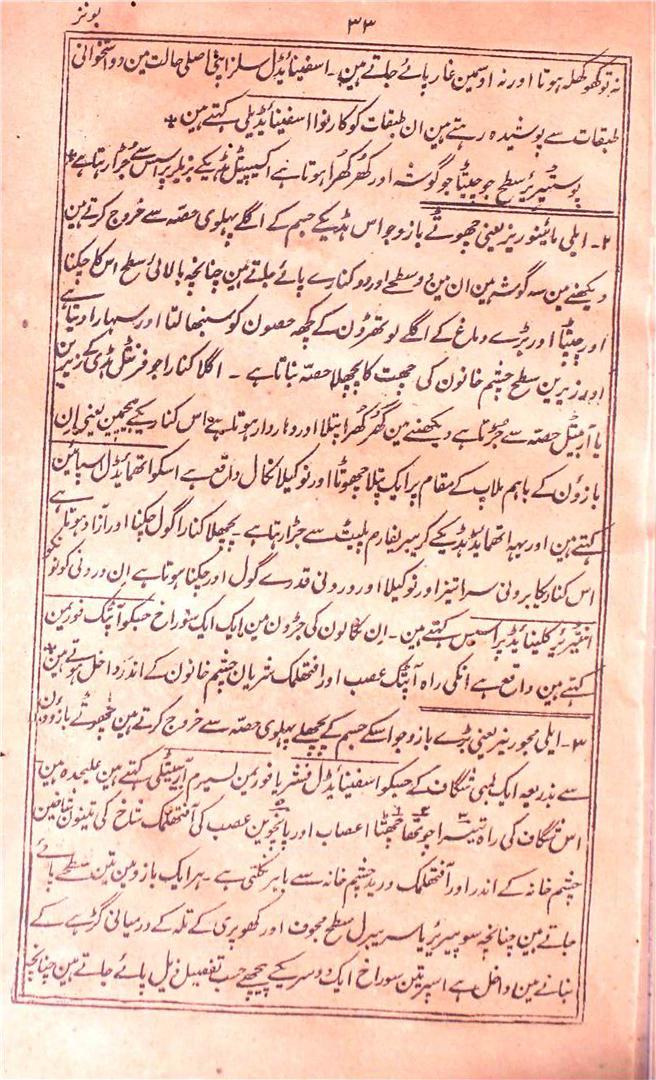 ۳۳
بونز
نہ تو کھوکھلہ ہوتا اور نہ اوسمین غار پائے جاتے ہین۔ اسفینائیڈل سلز اپنی اصلی حالت مین دو استخوانی
طبقات سے پوشیدہ رہتے ہین ان طبقات کو کارنوا اسفینائیڈیلی کہتے ہین *
پوسٹیریر سطح جو چپٹا چوگوشہ اور کھُرکھُرا ہوتا ہے اکسیپٹل ہڈیکے بزیلر پراسس سے جُڑا رہتا ہے *
۲۔ ایلی مائینوریز یعنی چھوٹے بازو جو اس ہڈیکے جسم کے اگلے پہلوی حصّہ سے خروج کرتے ہین
دیکھنے مین سہ گوشہ ہین ان مین دو سطح اور دو کنارے پائے جاتے ہین چنانچہ بالائی سطح اسکا چکنا
اور چپٹا اور بڑے دماغ کے اگلے لوتھڑون کے کچھ حصون کو سنبھالتا اور سہارا دیتا ہے
اور زیرین سطح چشم خانون کی چھت کا پچھلا حصّہ بناتا ہے ۔ اگلا کنارا جو فرنٹل ہڈی کے زیرین
یا آربیٹل حصّہ سے جُڑتا ہے دیکھنے مین کھُرکھُرا پتلا اور دہاردار ہوتا ہے اس کنارے کے بیچمین یعنی اِن
بازؤن کے باہم ملاپ کے مقام پر ایک پتلا چھوٹا اور نوکیلا نکال واقع ہے اسکو اتھمائیڈل اسپائین
کہتے ہین اور یہہ اتھمائیڈ ہڈیکے کریبریفارم پلیٹ سے جڑا رہتا ہے۔ پچھلا کنارا گول چکنا اور آزاد ہوتا ہے
اس کنارے کا برونی سرا تیز اور نوکیلا اور درونی قدرے گول اور چکنا ہوتا ہے اِن درونی کونونکو
انٹیریر کلینائیڈ پراسیس کہتے ہین۔ اِن نکالون کی جڑون مین ایک ایک سوراخ جسکو آپٹک فورمین
کہتے ہین واقع ہے انکی راہ آپٹک عصب اور افتھلمک شریان چشم خانون کے اندر داخل ہوتے ہین *
۳۔ ایلی میجوریز یعنی بڑے بازو جو اسکے جسم کے پچھلے پہلوی حصّہ سے خروج کرتے ہین چھوٹے بازوؤن
سے بذریعہ ایک لمبی شگاف کے جسکو اسفینائیڈل فشر یا فورمین لیسرم آربیٹلی کہتے ہین علیحدہ ہین
اس شگاف کی راہ تیسرا چوتھا چھٹا اعصاب اور پانچوین عصب کی آفتھلمک شاخ کی تینون شاخین
چشم خانہ کے اندر اور آفتھلمک ورید چشم خانہ سے باہر نکلتی ہے۔ ہر ایک بازو مین تین سطح پائے
جاتے ہین چنانچہ سوپیریر یا سریبرل سطح مجوف اور کھوپری کے تلہ کے درمیانی گڑہے کے
بنانے مین داخل ہے اسپر تین سوراخ ایک دوسرے کے پیچھے حسب تفصیل ذیل پائے جاتے ہین چنانچہ